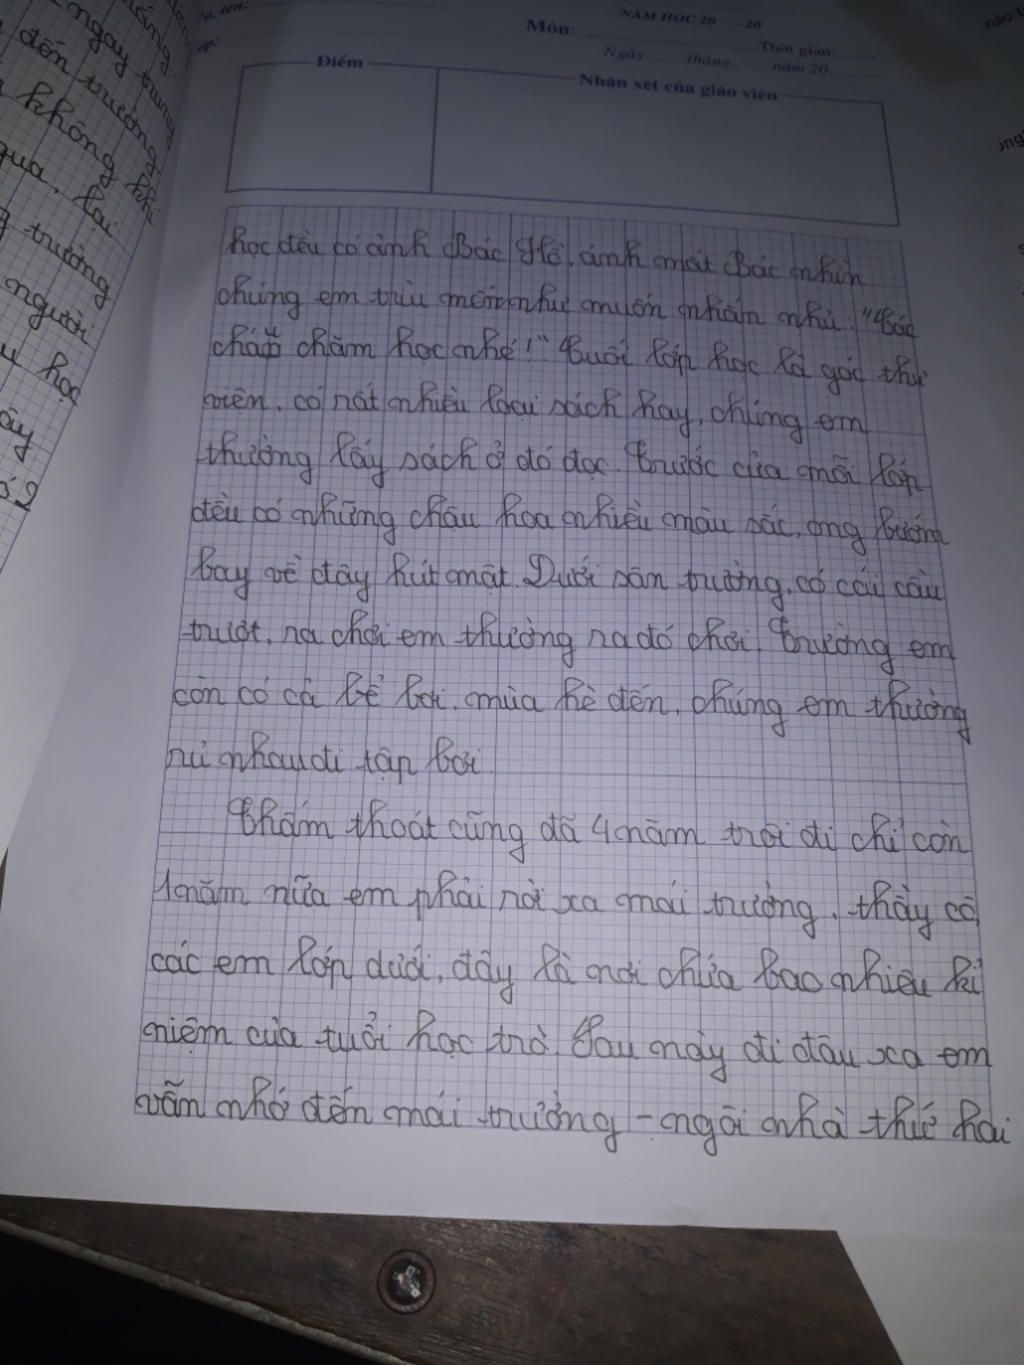 ngay trung
đến trường
không khí
qua, lại
trường
người
học
ây
NĂM HỌC 20 - 20
Môn: Thời gian:
Ngày tháng năm 20
Điểm
Nhận xét của giáo viên
học đều có ảnh Bác Hồ, ánh mắt Bác nhìn
chúng em trìu mến như muốn nhắn nhủ: "Các
cháu chăm học nhé!" Cuối lớp học là góc thư
viên, có rất nhiều loại sách hay, chúng em
thường lấy sách ở đó đọc. Trước cửa mỗi lớp
đều có những chậu hoa nhiều màu sắc, ong bướm
bay về đây hút mật. Dưới sân trường, có cái cầu
trượt, ra chơi em thường ra đó chơi. Trường em
còn có cả bể bơi, mùa hè đến, chúng em thường
rủ nhau đi tập bơi
Thấm thoát cũng đã 4 năm trôi đi chỉ còn
1 năm nữa em phải rời xa mái trường, thầy cô
các em lớp dưới, đây là nơi chứa bao nhiêu kỉ
niệm của tuổi học trò. Sau này đi đâu xa em
vẫn nhớ đến mái trường - ngôi nhà thứ hai